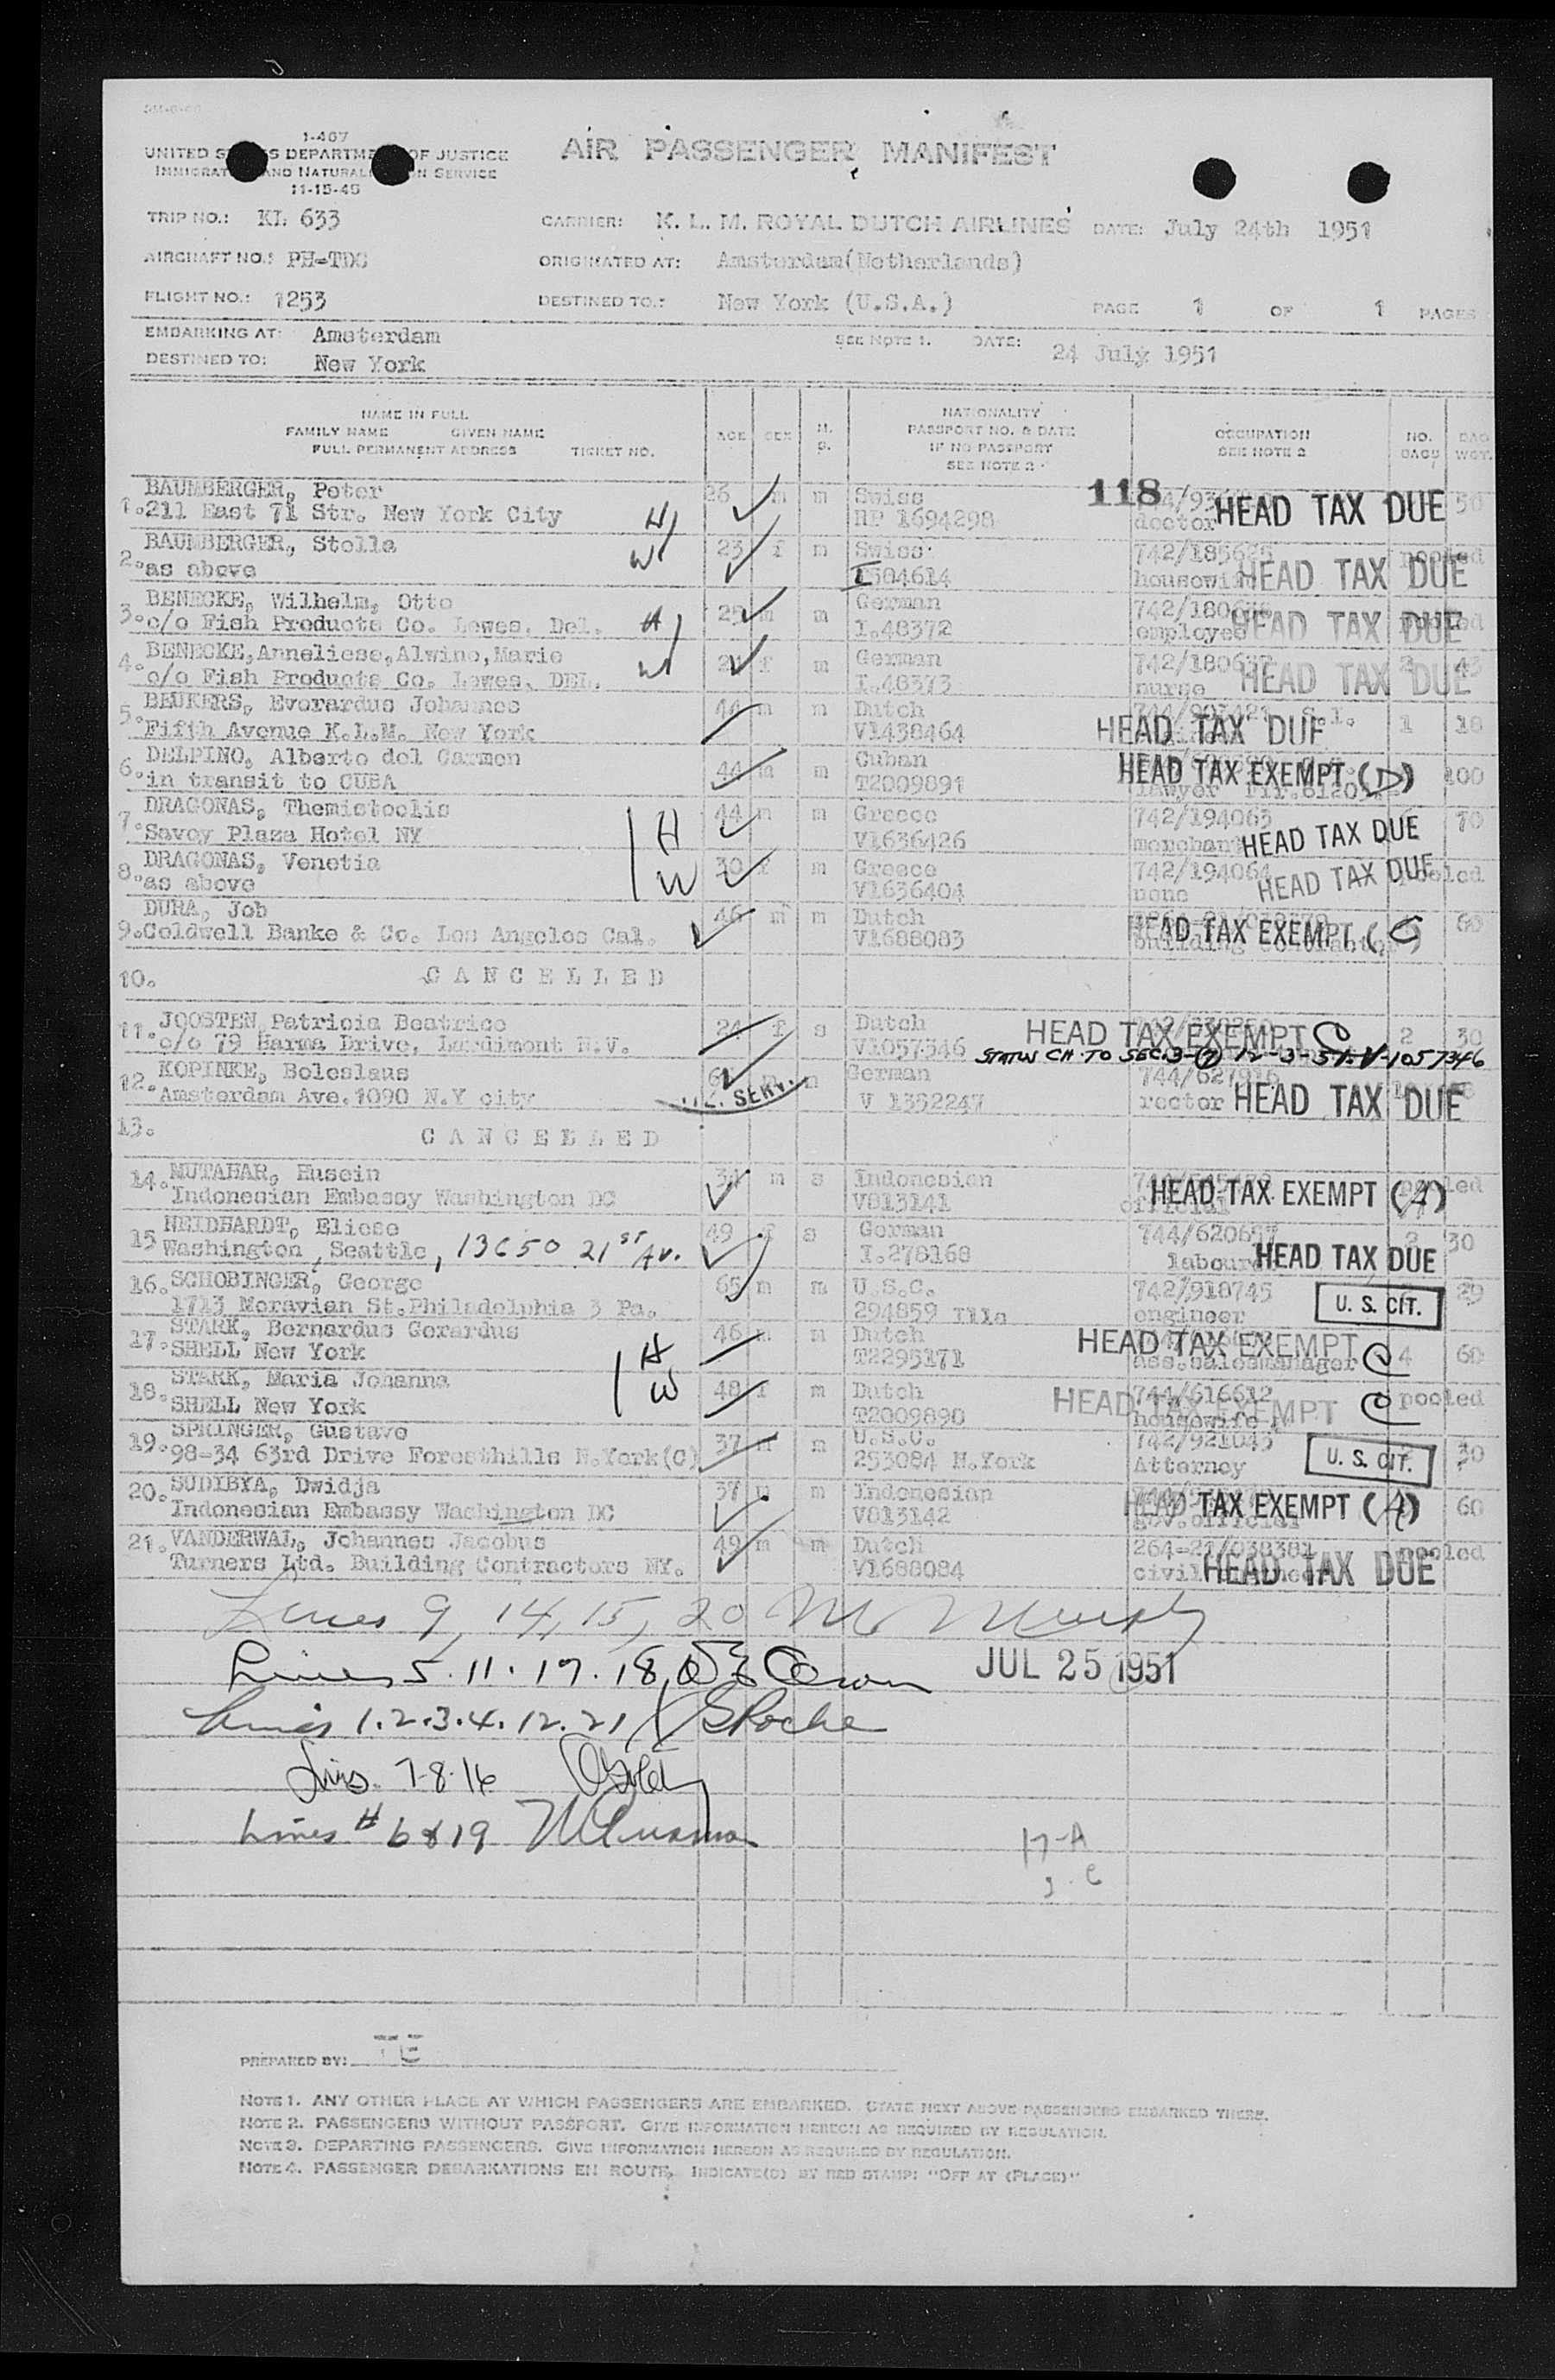 1-407
UNITED S S DEPARTME OF JUSTICE
IMMIGRAT AND NATURALI N SERVICE
11-15-45
AIR PASSENGER MANIFEST
TRIP NO.: KL 633 CARRIER: K. L. M. ROYAL DUTCH AIRLINES DATE: July 24th 1951
AIRCRAFT NO.: PH-TDC ORIGINATED AT: Amsterdam(Netherlands)
FLIGHT NO.: 1253 DESTINED TO.: New York (U.S.A.) PAGE 1 OF 1 PAGES
EMBARKING AT: Amsterdam SEE NOTE 1. DATE: 24 July 1951
DESTINED TO: New York
NAME IN FULL NATIONALITY
FAMILY NAME GIVEN NAME AGE SEX M. PASSPORT NO. & DATE OCCUPATION NO. BAG
FULL PERMANENT ADDRESS TICKET NO. S. IF NO PASSPORT SEE NOTE 2 BAGS WGT.
SEE NOTE 2
BAUMBERGER, Peter 26 m m Swiss 118 50
1.211 East 71 Str. New York City H RP 1694298 doctor HEAD TAX DUE
BAUMBERGER, Stella W 23 f m Swiss 742/185625 pooled
2.as above I504614 housewife HEAD TAX DUE
BENECKE, Wilhelm, Otto 25 m m German
3.c/o Fish Products Co. Lewes. Del. H I.48372 employee HEAD TAX DUE
BENECKE,Anneliese,Alwine,Marie W f m German 742/180637 2 43
4.c/o Fish Products Co. Lewes. DEL. I.48373 nurse HEAD TAX DUE
BEUKERS, Everardus Johannes 44 m m Dutch
5.Fifth Avenue K.L.M. New York V1438464 HEAD TAX DUE 1 18
DELPINO, Alberto del Carmen 44 m m Cuban HEAD TAX EXEMPT (D)
6.in transit to CUBA T2009891 lawyer 100
DRAGONAS, Themistoclis H 44 m m Greece 742/194063 70
7.Savoy Plaza Hotel NY V1636426 merchant HEAD TAX DUE
DRAGONAS, Venetia W 30 f m Greece 742/194064 pooled
8.as above V1636404 none HEAD TAX DUE
DURA, Job 46 m m Dutch 60
9.Coldwell Banke & Co. Los Angeles Cal. V1688083 HEAD TAX EXEMPT (C)
10. C A N C E L L E D
JOOSTEN Patricia Beatrice 24 f s Dutch HEAD TAX EXEMPT C 2 30
11.c/o 79 Harma Drive, Lardimont N.Y. V1057346 STATUS CH. TO SEC. 3-(7) 12-3-51. V-1057346
12.KOPINKE, Boleslaus m German 744/627916
Amsterdam Ave.1090 N.Y city SERV. V 1352247 rector HEAD TAX DUE
13. C A N C E L L E D
14.MUTAHAR, Husein 34 m s Indonesian pooled
Indonesian Embassy Washington DC V813141 official HEAD TAX EXEMPT (A)
15 NEIDHARDT, Eliese 49 f s German 744/620657 2 30
Washington, Seattle, 13650 21ST Av. I.278168 HEAD TAX DUE
16.SCHOBINGER, George 65 m m U.S.C. 742/918745 29
1713 Moravian St.Philadelphia 3 Pa. 294859 Illa engineer U. S. CIT.
STARK, Bernardus Gerardus 46 m m Dutch HEAD TAX EXEMPT
17.SHELL New York H T2295171 ass.salesmanager C 4 60
STARK, Maria Johanna W 48 f m Dutch 744/616612 pooled
18.SHELL New York T2009890 housewife HEAD TAX EXEMPT C
SPRINGER, Gustave 37 m m U.S.C. 742/921043 30
19.98-34 63rd Drive Foresthills N.York(C) 253084 N.York Attorney U. S. CIT.
20.SUDIBYA, Dwidja 37 m m Indonesian
Indonesian Embassy Washington DC V813142 gov.official HEAD TAX EXEMPT (A) 60
21.VANDERWAL, Johannes Jacobus 49 m m Dutch 264-21/038381 pooled
Turners Ltd. Building Contractors NY. V1688084 civil HEAD TAX DUE
Lines 9, 14, 15, 20
Lines 5. 11. 17. 18 JUL 25 1951
Lines 1.2.3.4.12.21 Roche
Lins. 7-8-16
Lines # 6 & 19
17-A
3. C
PREPARED BY: TE
NOTE 1. ANY OTHER PLACE AT WHICH PASSENGERS ARE EMBARKED. STATE NEXT ABOVE PASSENGERS EMBARKED THERE.
NOTE 2. PASSENGERS WITHOUT PASSPORT. GIVE INFORMATION HEREON AS REQUIRED BY REGULATION.
NOTE 3. DEPARTING PASSENGERS. GIVE INFORMATION HEREON AS REQUIRED BY REGULATION.
NOTE 4. PASSENGER DEBARKATIONS EN ROUTE, INDICATE(D) BY RED STAMP: "OFF AT (PLACE)"